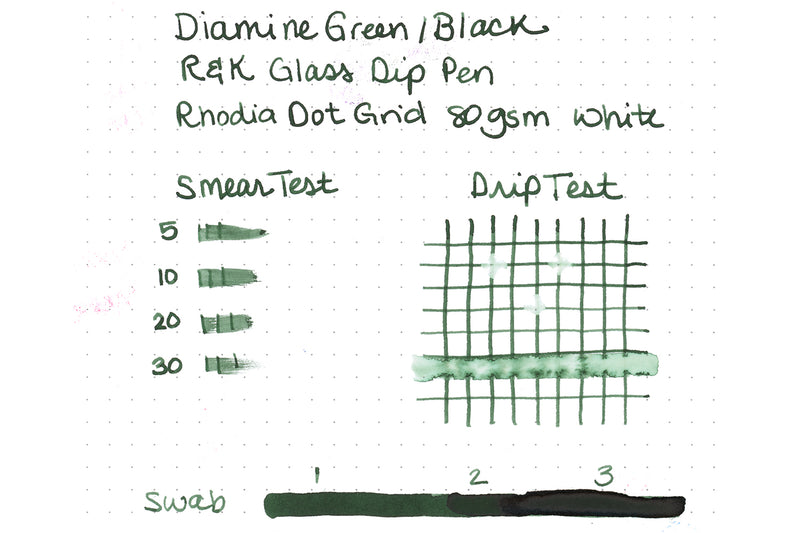 Diamine Green/Black
R&K Glass Dip Pen
Rhodia Dot Grid 80gsm white
Smear Test
Drip Test
5
10
20
30
1 2 3
Swab